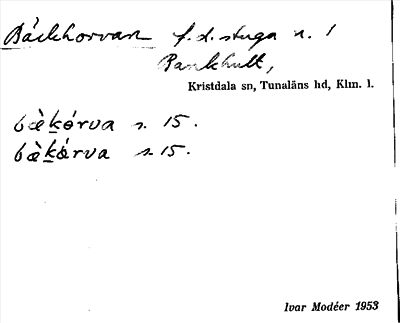 Bäckhorvan f.d. stuga n. 1
Bankhult,
Kristdala sn, Tunaläns hd, Klm. l.
bæ̀ḵórva s. 15.
bæ̀ḵárva s. 15.
Ivar Modéer 1953